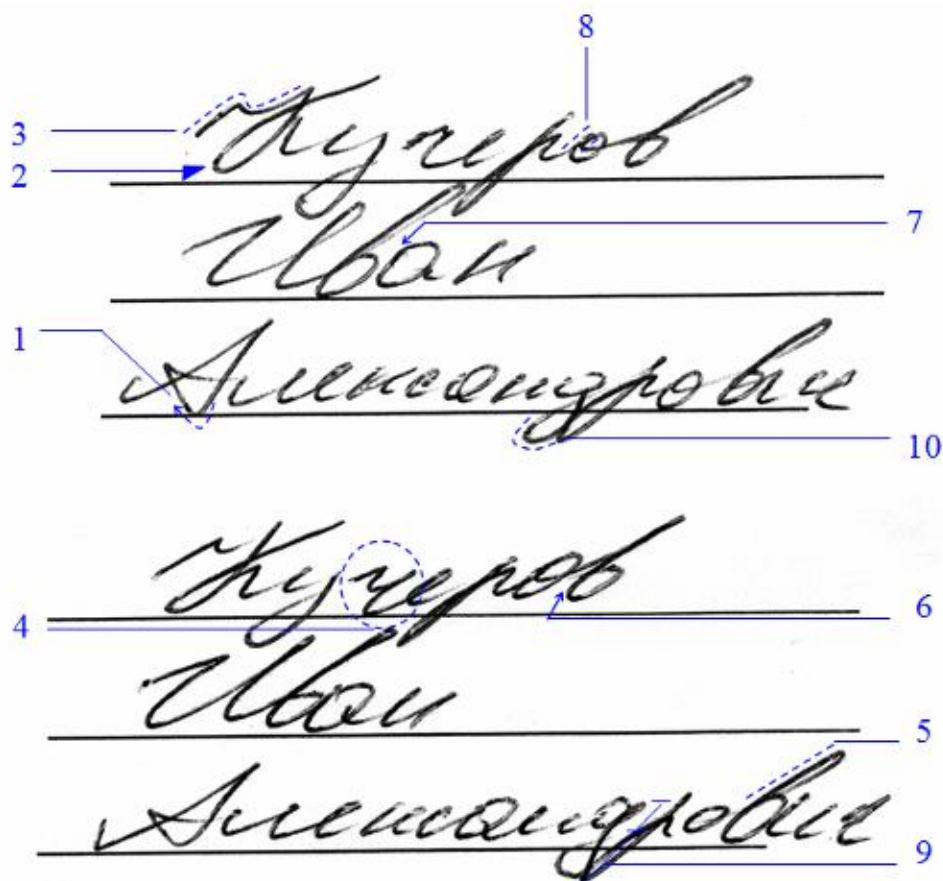 8
3
Кучеров
2
Иван
7
1
Александрович
10
Кучеров
4
6
Иван
5
Александрович
9